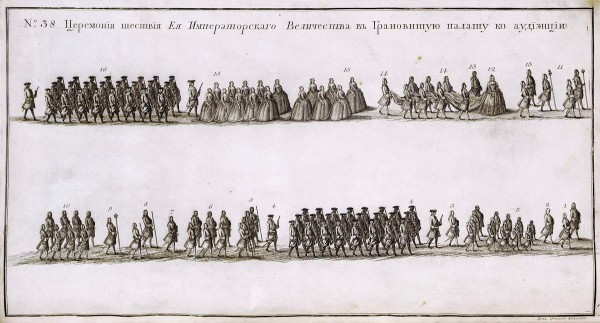 №. 38. Церемонія шествія Ея Императорскаго Величества въ Грановитую палату ко аудіэнціи
16 15 15 14 14 13 12 13 11
10 9 8 7 6 5 4 4 3 2 2 1